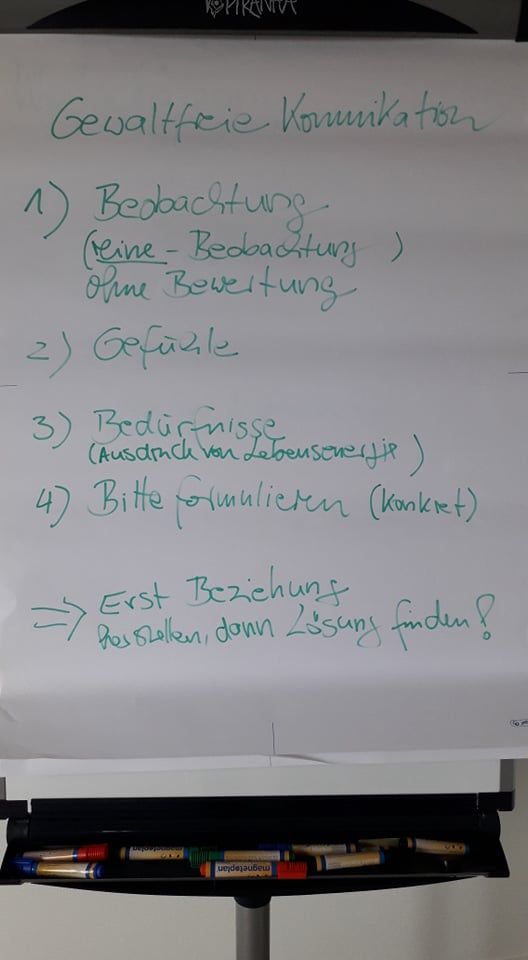 PIRANHA
Gewaltfreie Kommunikation
1) Beobachtung
(reine - Beobachtung)
ohne Bewertung
2) Gefühle
3) Bedürfnisse
(Ausdruck von Lebensenergie)
4) Bitte formulieren (konkret)
⇒ Erst Beziehung
herstellen, dann Lösung finden!
magnetoplan
magnetoplan